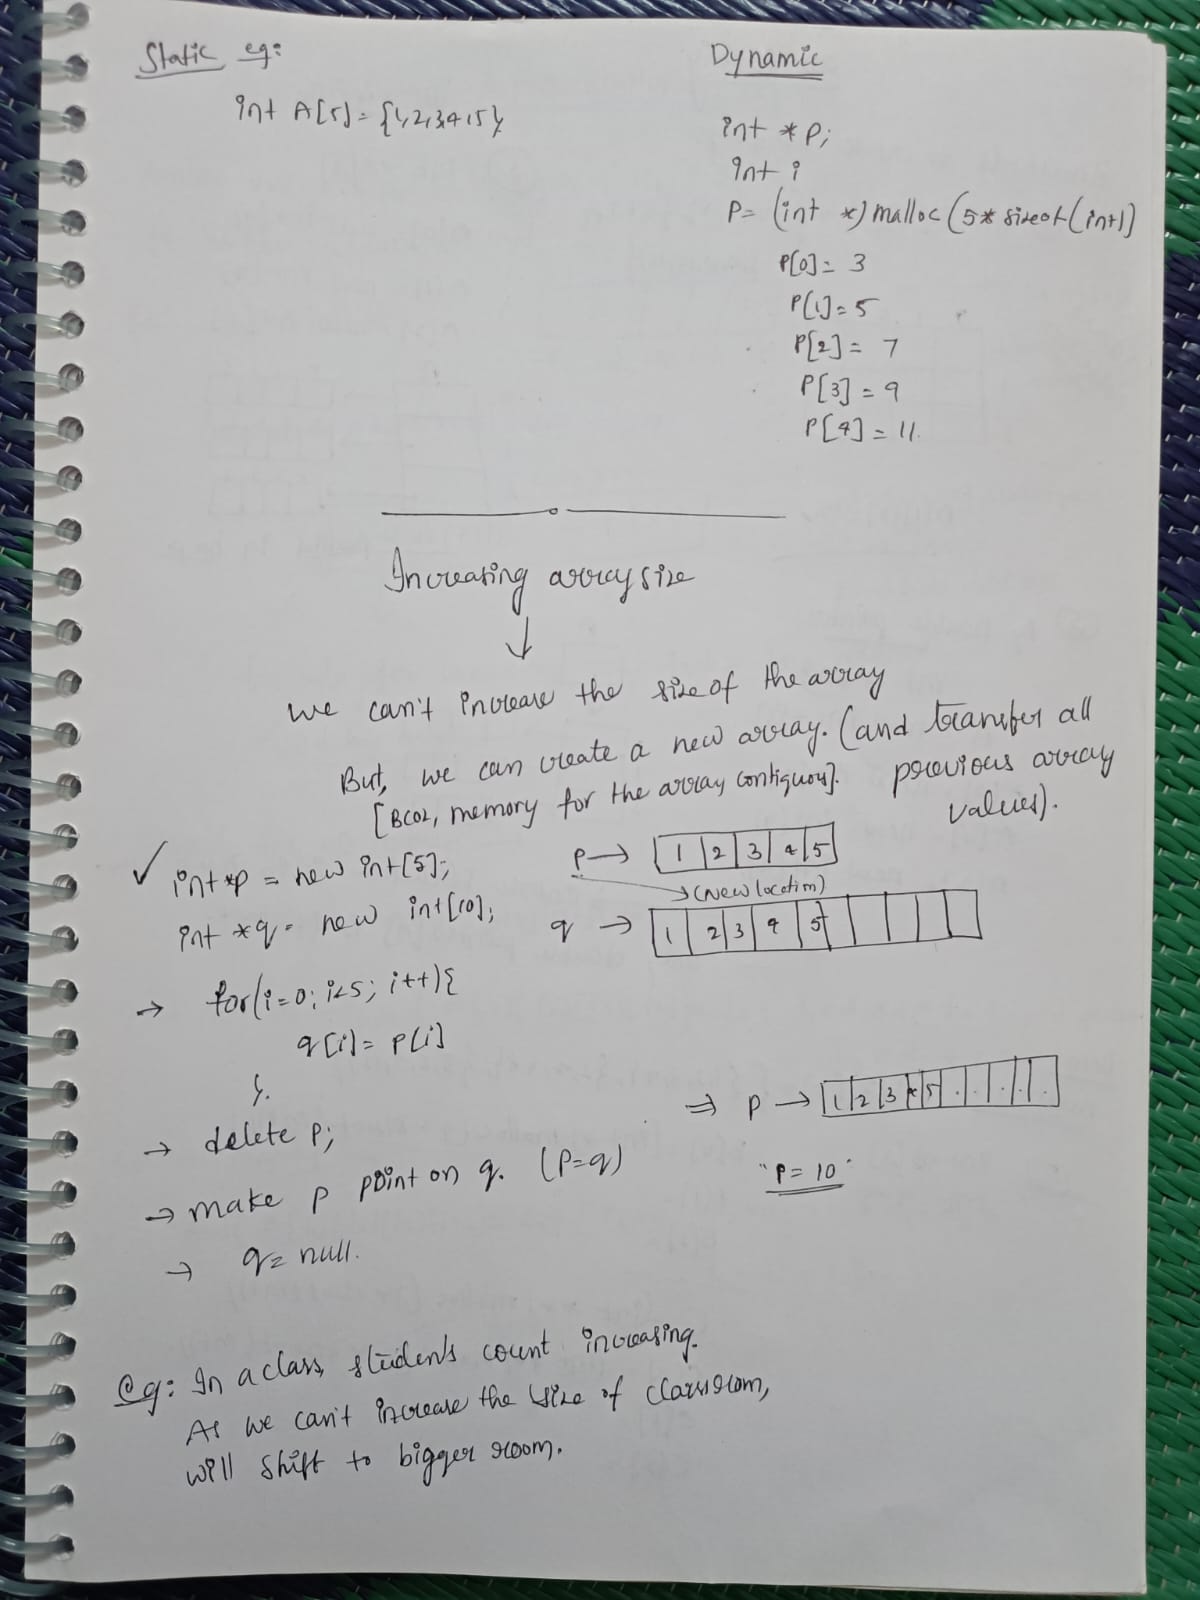 Static eg:
int A[5] = {1,2,3,4,5}
Dynamic
int *p;
int i
P= (int *) malloc (5* sizeof(int))
P[0]= 3
P[1]= 5
P[2]= 7
P[3] = 9
P[4] = 11.
Increasing array size
↓
we can't increase the size of the array
But, we can create a new array. (and transfer all
previous array
values).
[BCOZ, memory for the array contiguous].
✓ int *p = new int[5];
int *q = new int[10];
→ for(i=0; i<5; i++){
q[i]= P[i]
}.
→ delete P;
→ make p point on q. (P=q)
→ q= null.
P → 1 2 3 4 5
→ (New location)
q → 1 2 3 4 5
⇒ P → 1 2 3 4 5 . . . .
"P= 10"
eg: In a class, students count increasing.
As we can't increase the size of classroom,
will shift to bigger room.